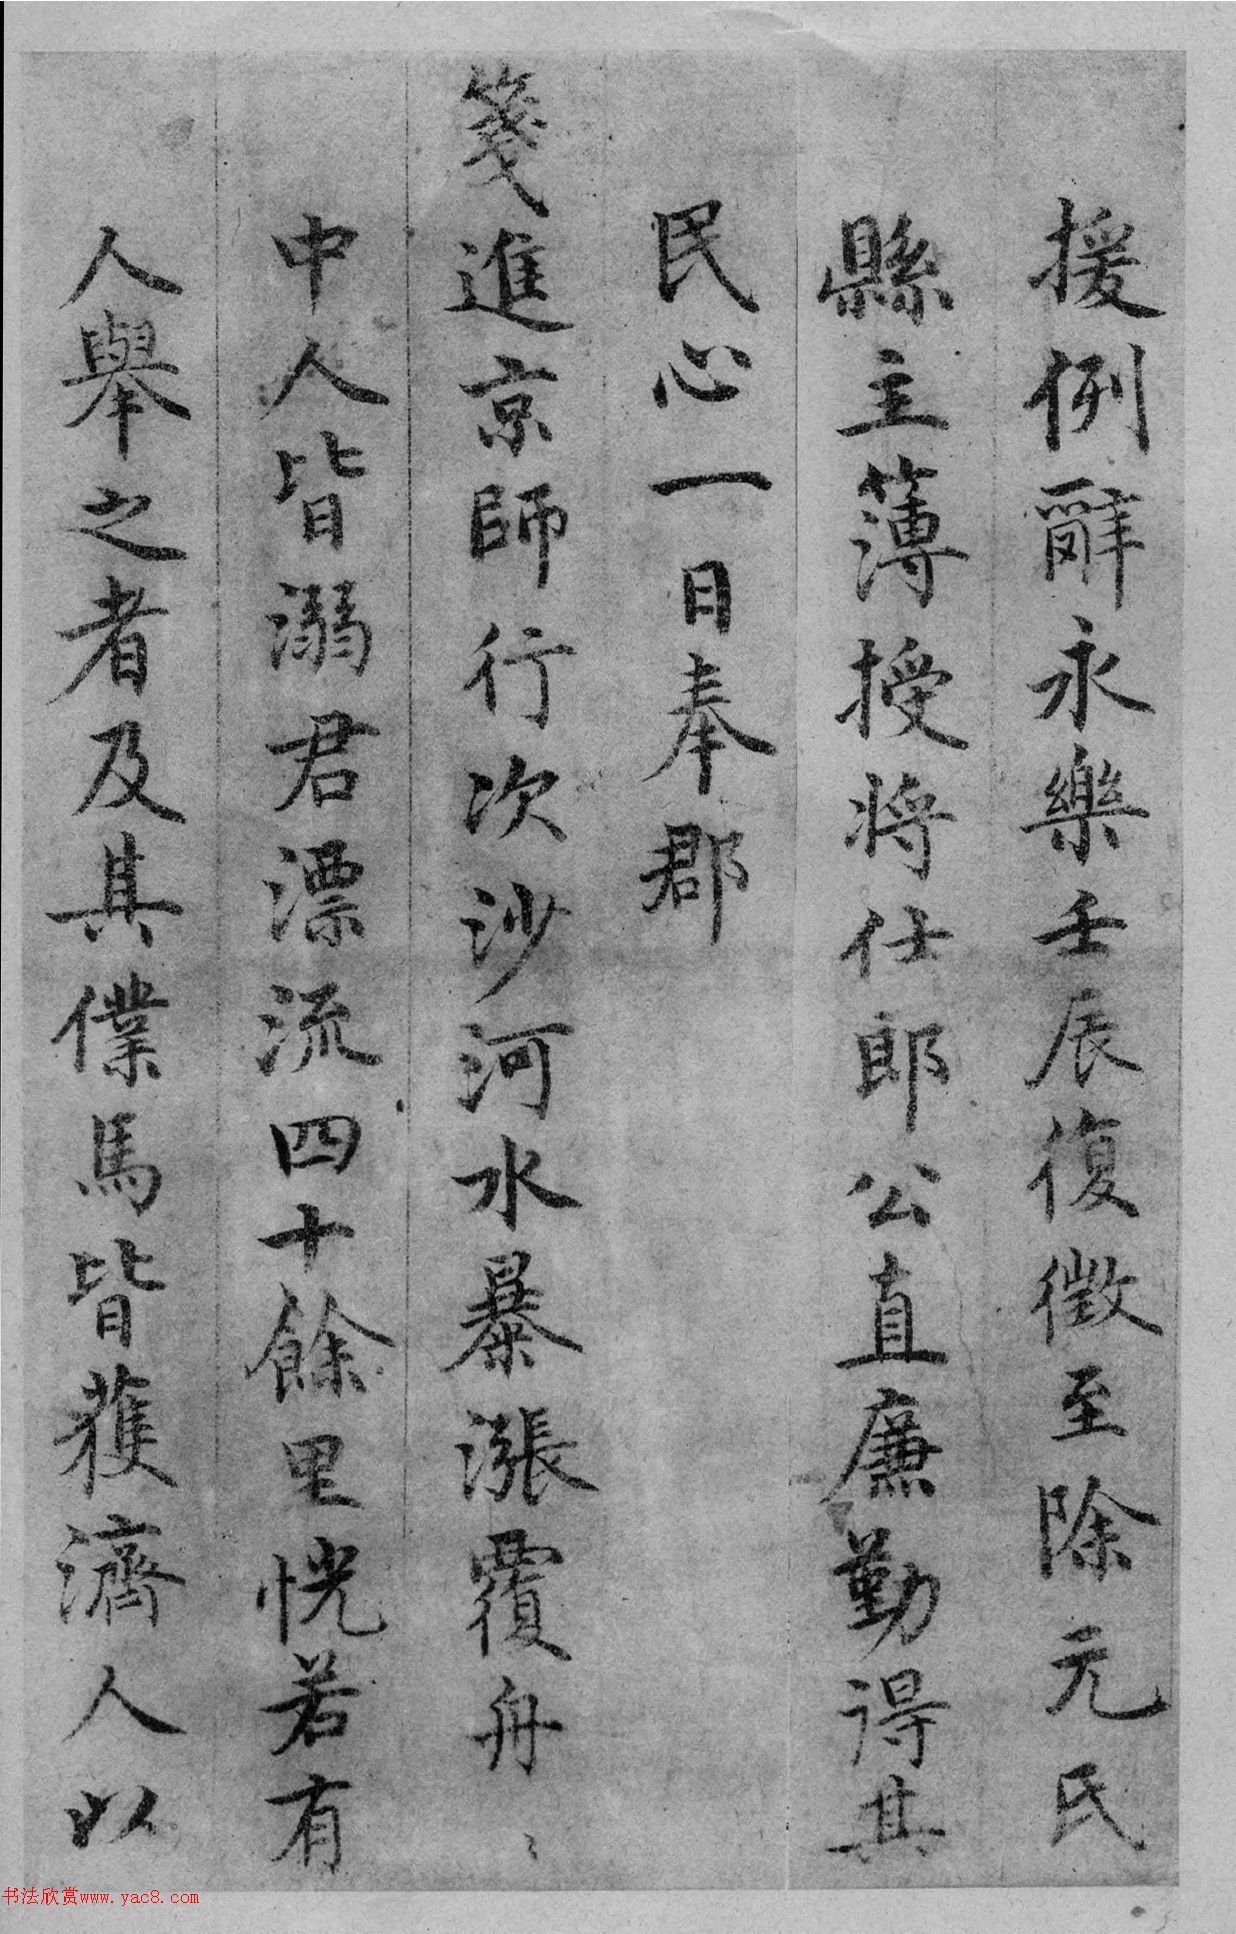 援例辭永樂壬辰復徵至除元氏
縣主薄授將仕郎公直廉勤得其
民心一日奉郡
箋進京師行次沙河水暴漲覆舟〻
中人皆溺君漂流四十餘里恍若有
人舉之者及其僕馬皆獲濟人以
书法欣赏www.yac8.com